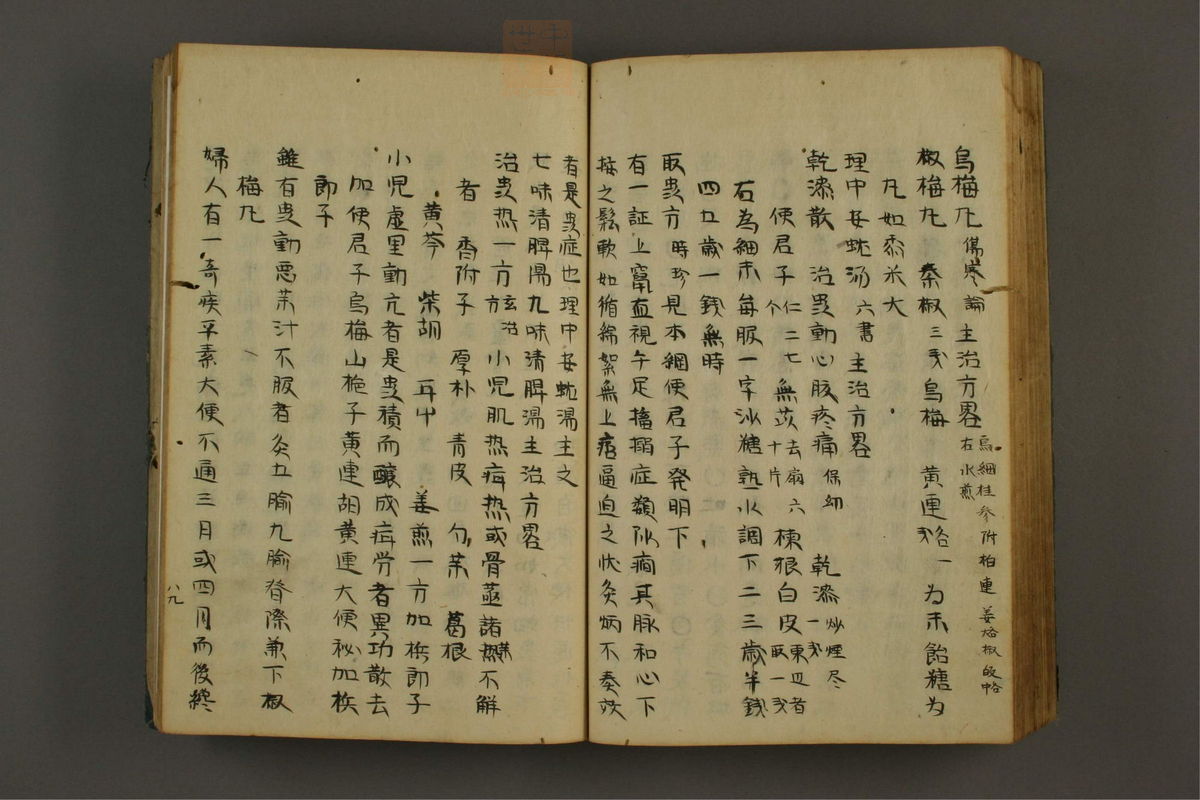 烏梅丸 傷寒論 主治方畧 烏細桂参附柏連姜
右水煎
椒梅丸 秦椒三戔烏梅 黄連各一為末飴糖為
丸如黍米大
理中安蚘湯 六書 主治方畧
乾漆散 治蚘動心腹疼痛 保幼 乾漆一戔炒煙尽
使君子仁二七个 無荑去扇六十片 楝根白皮東辺者取一戔
右為細末毎服一字沙糖熟水調下二三歳半銭
四五歳一銭無時
取蚘方 時珍見本綱使君子発明下
有一証上竄直視手足搐搦症類似癇其脉和心下
按之鬆軟如循綿絮無上 逼迫之状灸焫不奏效
者是蚘症也理中安蚘湯主之
七味清脾湯九味清脾湯主治方畧
治蚘热一方 方玄治 小児肌热疳热或骨蒸諸热不解
者 香附子 厚朴 青皮 勺薬 葛根
黄芩 柴胡 耳中 姜煎一方加梹郎子
小児虚里動亢者是蚘積而醸成疳労者異功散去
加使君子烏梅山梔子黄連胡黄連大便秘加梹
郎子
雖有蚘動悪薬汁不服者灸五腧九腧脊際兼下椒
梅丸
婦人有一奇疾平素大便不通三月或四月而後終
八九